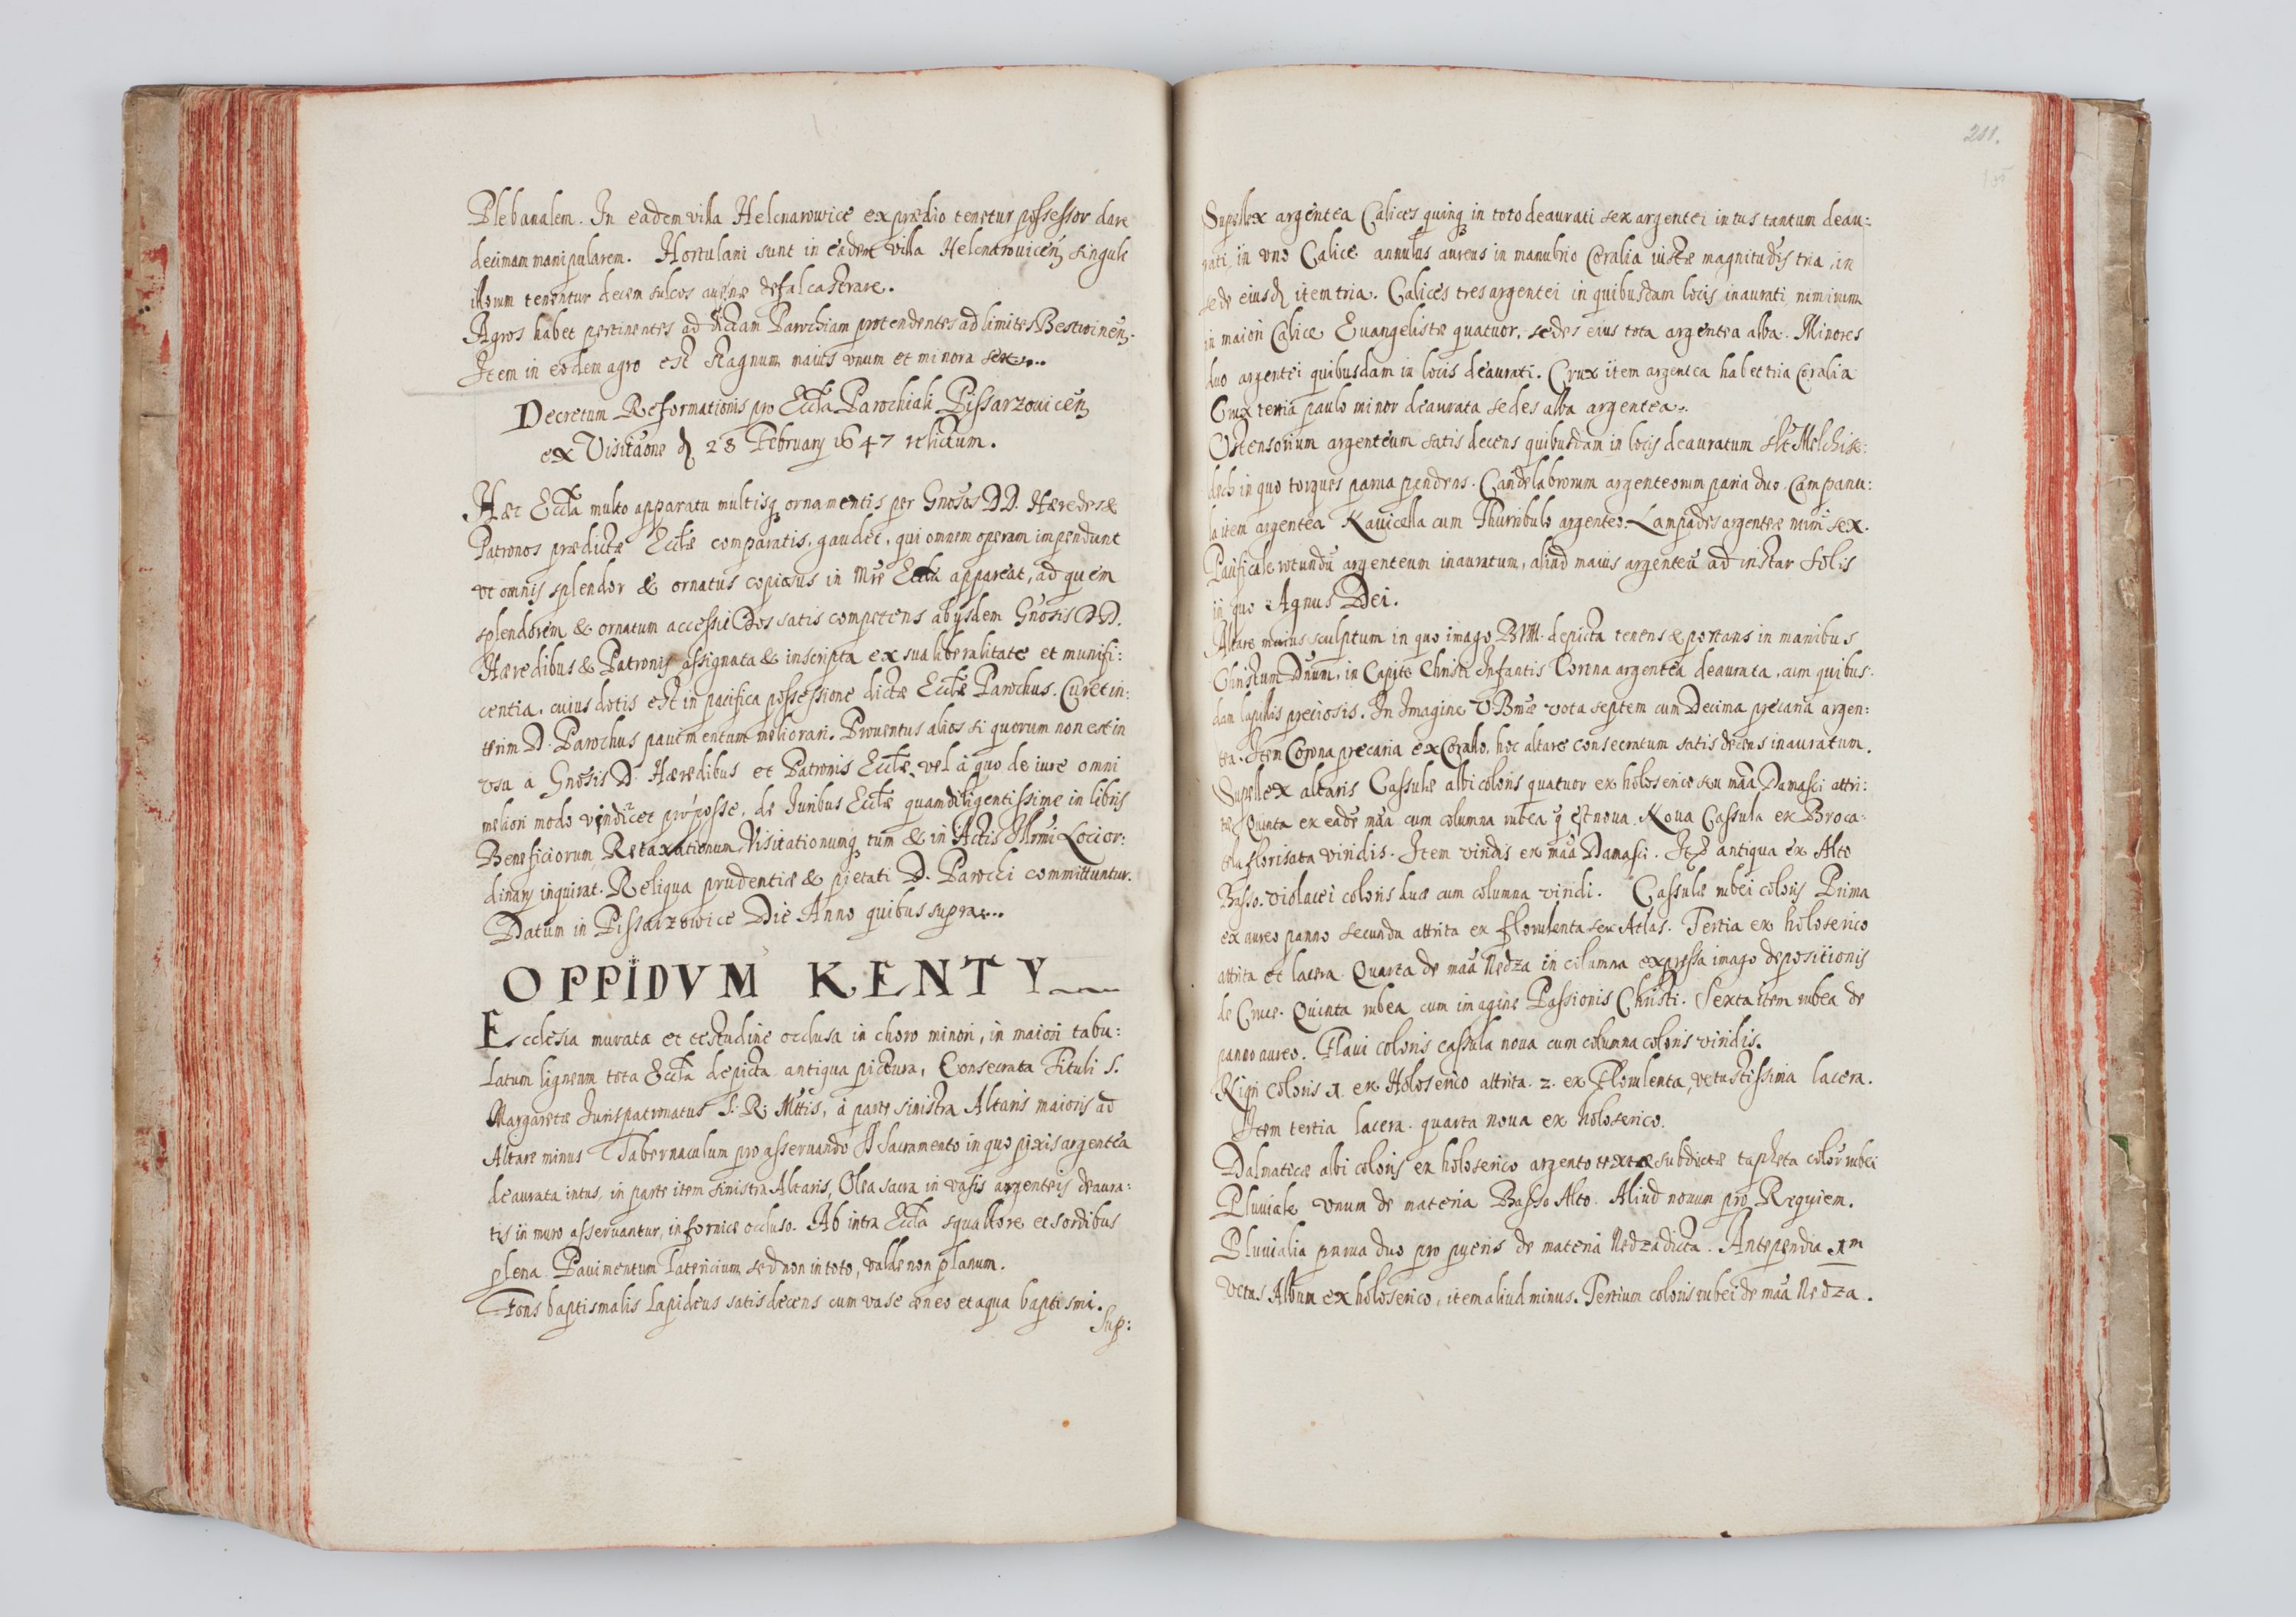 Plebanalem. In eadem villa Helcnarowice ex prædio tenetur possessor dare
decimam manipularem. Hortulani sunt in eadem villa Helcnarouicen singuli
illorum tenentur decem sulcos auenæ defalcastrare.
Agros habet pertinentes ad dictam Parochiam protendentes ad limites Bestwinen.
Item in eodem agro est stagnum maius vnum et minora sex
Decretum Reformationis pro Eccla Parochiali Pissarzouicen
ex Visitaone d 28 February 1647 relictum.
Hæc Eccla multo apparatu multisq ornamentis per Gnosos DD. Hæredes &
Patronos prædictæ Ecclæ comparatis, gaudet, qui omnem operam impendunt
vt omnis splendor & ornatus copiosus in Mre Eccla appareat, ad quem
splendorem & ornatum accessit Dos satis competens ab ijsdem Gnosis DD.
Hæredibus & Patronis assignata & inscripta ex sua liberalitate et munifi:
centia, cuius dotis est in pacifica possessione dictæ Ecclæ Parochus. Curet in:
terim D. Parochus pauimentum meliorari. Prouentus alios si quorum non est in
vsu a Gnosis D. Hæredibus et Patronis Ecclæ, vel a quo de iure omni
meliori modo vindicet pro posse, de Iuribus Ecclæ quam diligentissime in libris
Beneficiorum Retaxationum Visitationumq tum & in Actis Illrmi Loci or:
dinary inquirat. Reliqua prudentiæ & pietati D. Parochi committuntur.
Datum in Pissarzowice Die Anno quibus supra
OPPIDVM KENTY
Ecclesia murata et testudine occlusa in choro minori, in maiori tabu:
latum ligneum tota Eccla depicta antiqua pictura, Consecrata Tituli S.
Margaretæ Iurispatronatus S. R. Mttis, à parte sinistra Altaris maioris ad
Altare minus Tabernaculum pro asseruando SSacramento in quo pixis argentea
deaurata intus, in parte item sinistra Altaris, Olea sacra in vasis argenteis deaura:
tis in muro asseruantur, in fornice occluso. Ab intra Eccla squallore et sordibus
plena. Pauimentum latericium sed non in toto, valde non planum.
Fons baptismalis lapideus satis decens cum vase æneo et aqua baptismi.
Sup:
211.
Supellex argentea Calices quinq in toto deaurati sex argentei intus tantum deau:
rati, in vno Calice annulus aureus in manubrio Coralia iustæ magnitudis tria, in
sede eiusd item tria. Calices tres argentei in quibusdam locis inaurati, nimirum
in maiori Calice Euangelistæ quatuor, sedes eius tota argentea alba. Minores
duo argentei quibusdam in locis deaurati. Crux item argentea habet tria Coralia
Crux tertia paulo minor deaurata sedes alba argentea.
Ostensorium argenteum satis decens quibusdam in locis deauratum Melchise:
dech in quo torques parua pendens. Candelabrorum argenteorum paria duo. Campanu:
la item argentea Nauicella cum Thurribulo argenteo. Lampades argenteæ sex.
Pacificale rotundu argenteum inauratum, aliud maius argenteu ad instar Solis
in quo Agnus Dei.
Altare maius sculptum in quo imago BVM. depicta tenens & portans in manibus
Christum Dnum, in Capite Christi Infantis Corona argentea deaurata, cum quibus:
dam lapillis preciosis. In Imagine VBmæ vota septem cum Decima precaria argen:
tea. Item Corona precaria ex Corallo, hoc altare consecratum satis decens inauratum.
Supellex altaris Cassulæ albi coloris quatuor ex holoserico seu maa Damasci attri:
tæ Quinta ex eade maa cum columna rubea q est noua. Noua Cassula ex Broca:
tela florisata viridis. Item viridis ex maa Damasci. antiqua ex Alto
Basso. violacei coloris duæ cum columna viridi. Cassulæ rubei coloris Prima
ex aureo panno secunda attrita ex florulenta seu Atlas. Tertia ex holoserico
attrita et lacera. Quarta de maa Nedza in columna expressa imago depositionis
de Cruce. Quinta rubea cum imagine Passionis Christi. Sexta item rubea de
panno aureo. Flaui coloris cassula noua cum columna coloris viridis.
Nigri coloris 1. ex Holoserico attrita. 2. ex Florulenta, vetustissima lacera.
Item tertia lacera. quarta noua ex holoserico.
Dalmaticæ albi coloris ex holoserico argento textæ subdictæ taphta color rubei
Pluuiale vnum de materia Basso Alto. Aliud nouum pro Requiem.
Pluuialia parua duo pro pueris de materia Nedza dicta. Antependia 1m
vetus Album ex holoserico, item aliud minus. Tertium coloris rubei de maa Nedza.